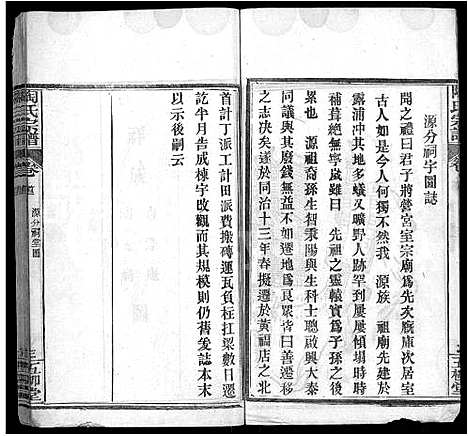 陶氏宗譜 卷
源分祠宇圖誌
聞之禮曰君子將營宮室宗廟爲先次廐庫次居室
古人如是今人何獨不然我 源族 祖廟先建於
露浦冲其地多蟻又曠野人跡到罕屢屢傾塌時時
補葺絶無寧歲雖曰 先祖之靈轅實爲子孫之後
累也 源祖裔孫生初秉陽與生科士聰啟興大秦
同議與其廢錢無益不如遷地爲良眾皆曰善遷移
之志决矣遂於同治十三年春擬遷於黄福店之北
五柳堂
陶氏宗譜 卷首
源分祠堂圖
首計丁派工計田派費搬磚運瓦負标扛梁數日遷
訖半月告成棟宇改觀而其規模則仍舊爰誌本末
以示後嗣云
五柳堂